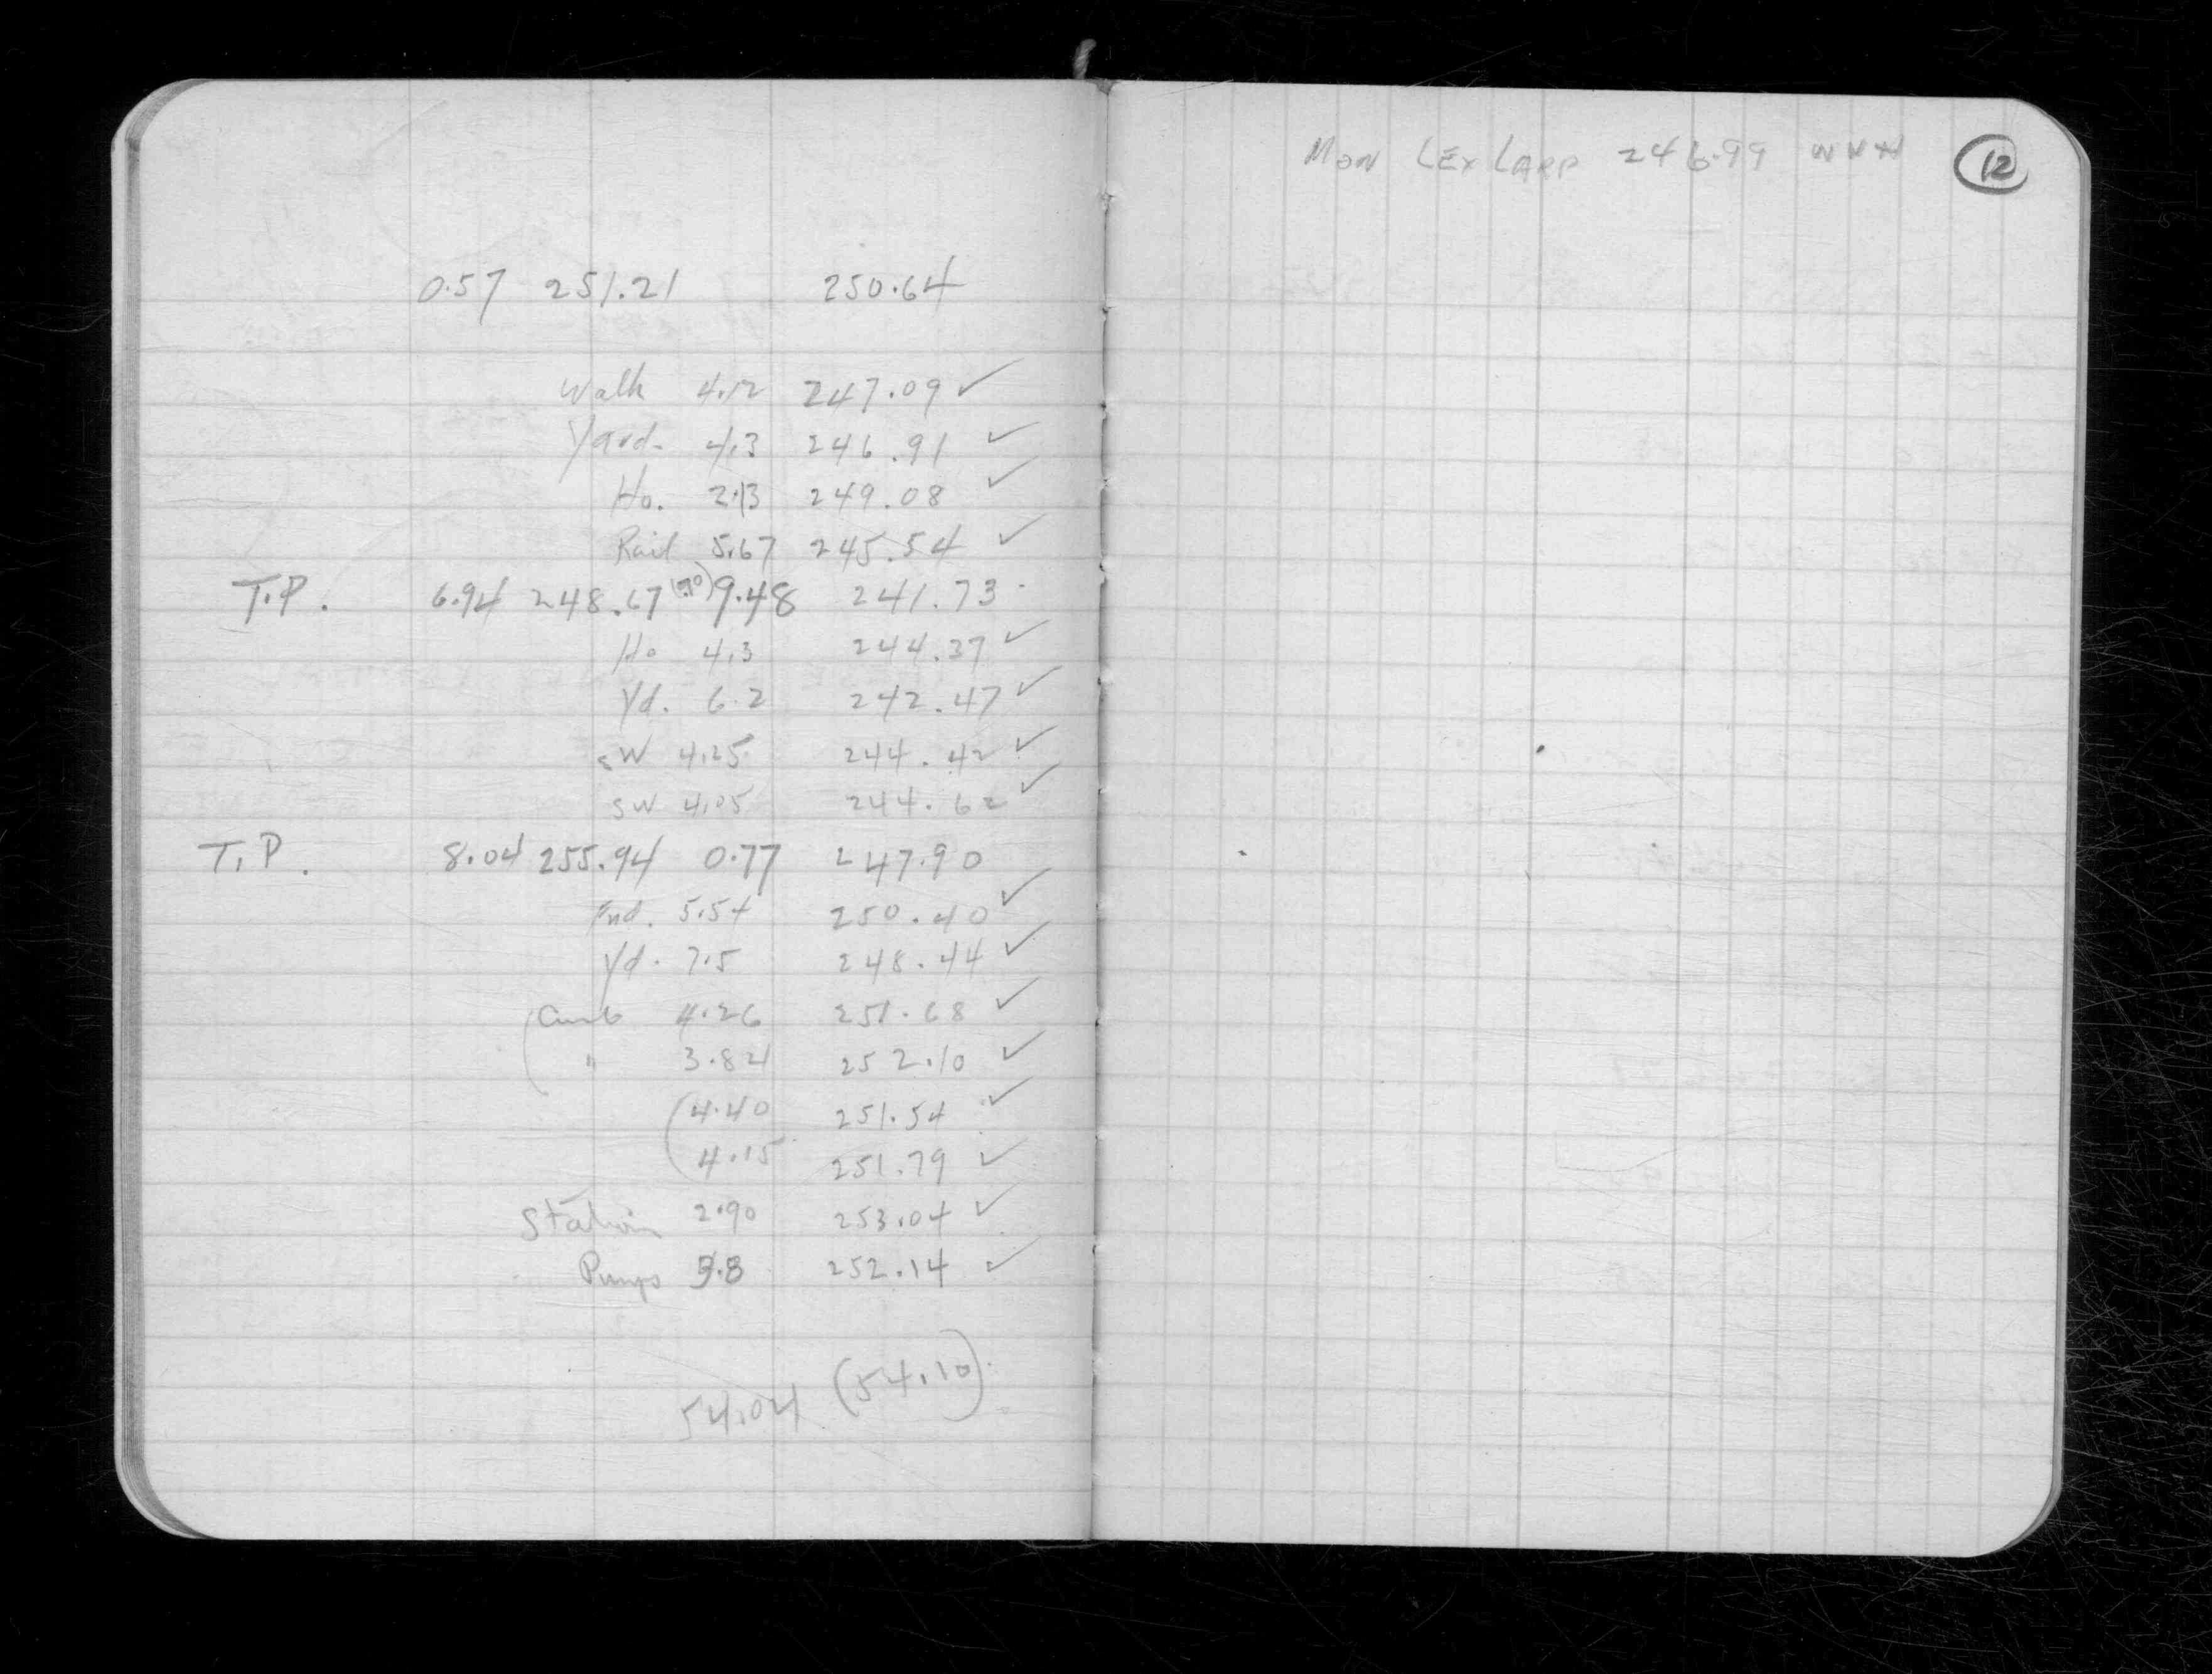 0.57 251.21 250.64
Walk 4.12 247.09 ✓
Yard. 4.3 246.91 ✓
Ho. 2.13 249.08 ✓
Rail 5.67 245.54 ✓
T.P. 6.94 248.67 9.48 241.73
Ho 4.3 244.37 ✓
Yd. 6.2 242.47 ✓
SW 4.25 244.42 ✓
SW 4.05 244.62 ✓
T.P. 8.04 255.94 0.77 247.90
Fnd. 5.54 250.40 ✓
Yd. 7.5 248.44 ✓
(Curb 4.26 251.68 ✓
( " 3.84 252.10 ✓
(4.40 251.54 ✓
4.15 251.79 ✓
Station 2.90 253.04 ✓
Pumps 3.8 252.14 ✓
54.04 (54.10)
Mon LEX LARP 246.99 12